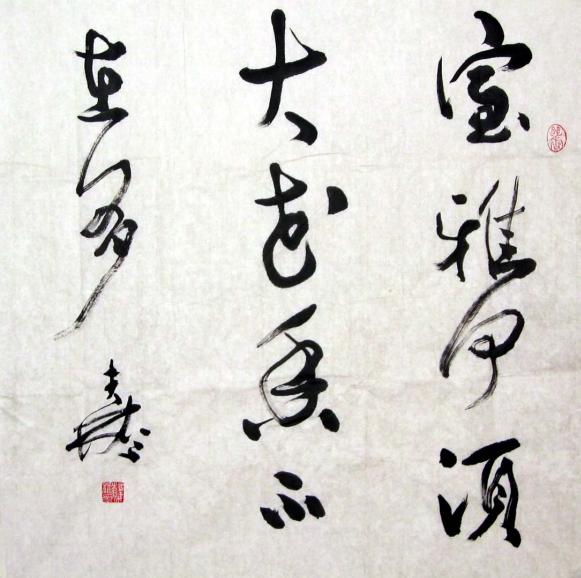 室雅何須
大花香不
在多